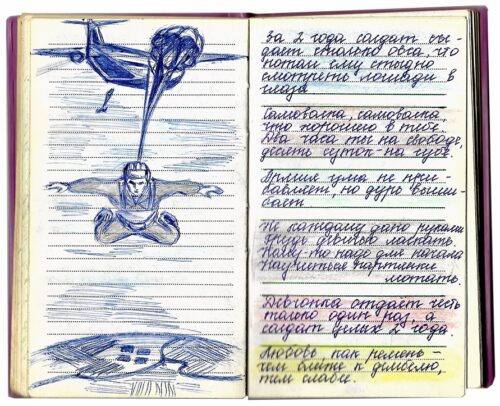 За 2 года солдат съе-
дает столько овса, что
потом ему стыдно
смотреть лошади в
глаза.
Самоволка, самоволка,
что хорошего в тебе.
Два часа ты на свободе,
десять суток - на губе.
Армия ума не при-
бавляет, но дурь вышиб-
ает.
Не каждому дано руками
грудь девичью ласкать.
Кому-то надо для начала
научиться портянки
мотать.
Девчонка отдаёт честь
только один раз, а
солдат целых 2 года.
Любовь, как ремень -
чем ближе к дембелю,
тем слабее.